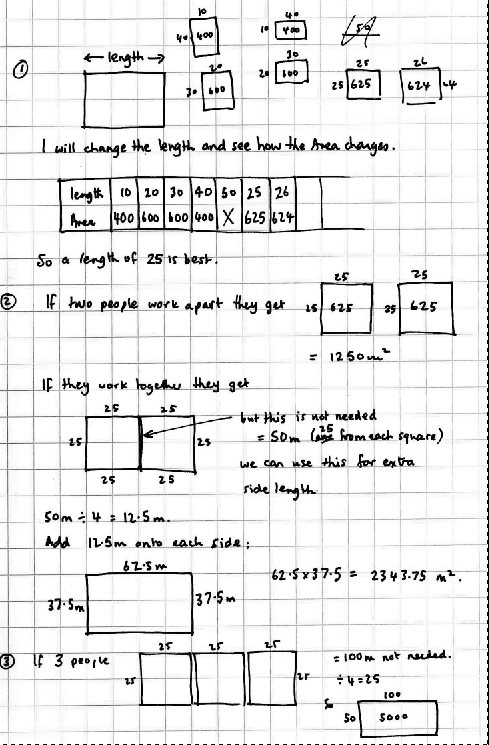 10
40 400
40
10 400
50
① length
20
30 600
30
20 600
25
25 625
26
624 24
I will change the length and see how the Area changes.
length 10 20 30 40 50 25 26
Area 400 600 600 400 X 625 624
So a length of 25 is best.
② If two people work apart they get
25 25
25 625 25 625
= 1250m²
If they work together they get
25 25
25 25
25 25
but this is not needed
= 50m (25 from each square)
we can use this for extra
side length
50m ÷ 4 = 12.5m.
Add 12.5m onto each side:
62.5m
37.5m 37.5m
62.5 x 37.5 = 2343.75 m².
③ If 3 people
25 25 25
25 25
= 100m not needed.
÷ 4 = 25
So
100
50 5000